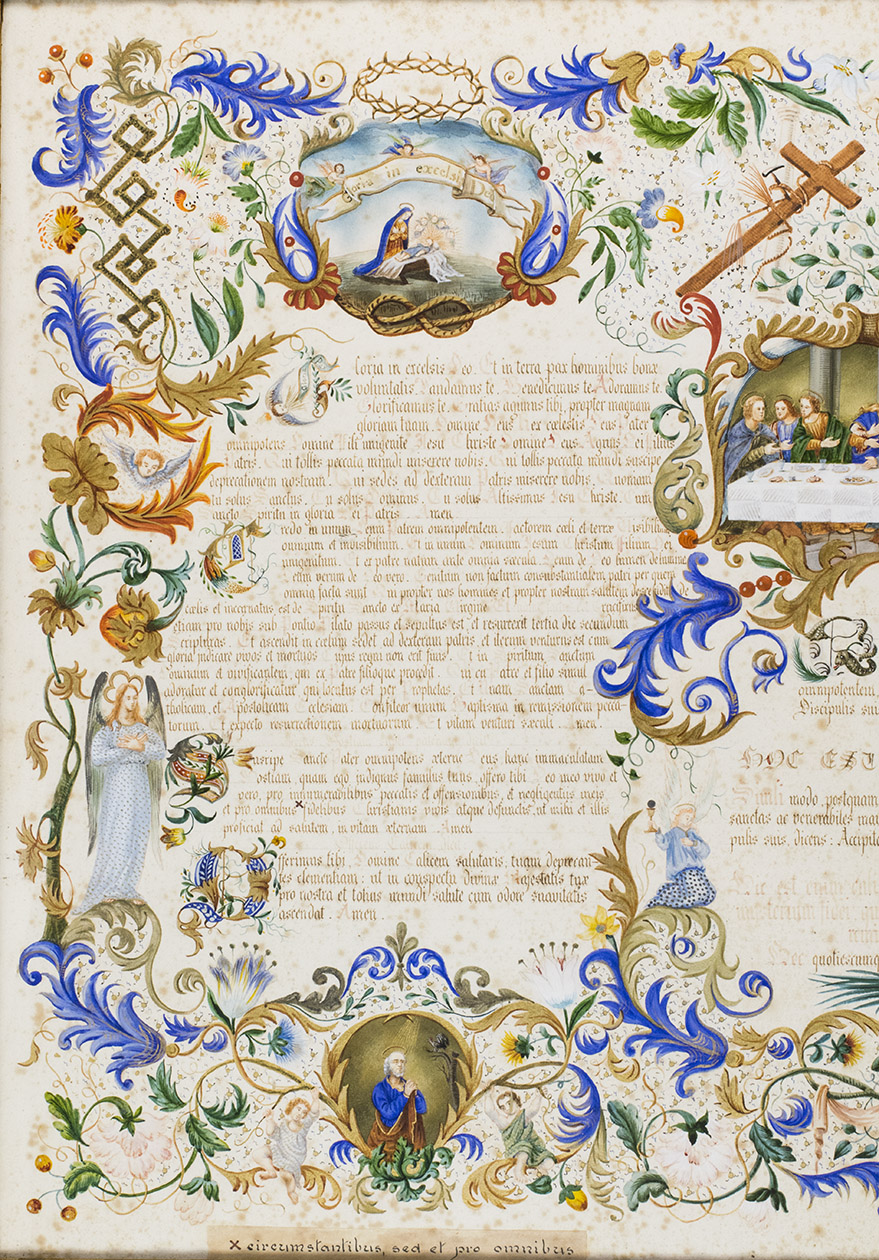 Gloria in excelsis Deo
Gloria in excelsis Deo. Et in terra pax hominibus bonæ
voluntatis. Laudamus te. Benedicimus te. Adoramus te.
Glorificamus te. Gratias agimus tibi, propter magnam
gloriam tuam. Domine Deus Rex cœlestis Deus Pater
omnipotens Domine Fili unigenite Jesu Christe Domine Deus Agnus Dei filius
Patris. Qui tollis peccata mundi miserere nobis. Qui tollis peccata mundi suscipe
deprecationem nostram. Qui sedes ad dexteram Patris miserere nobis. Quoniam
tu solus Sanctus. Tu solus Dominus. Tu solus Altissimus Jesu Christe. Cum
Sancto Spiritu in gloria Dei Patris. Amen.
Credo in unum Deum Patrem omnipotentem, factorem cœli et terræ visibilium
omnium et invisibilium. Et in unum Dominum Jesum Christum Filium Dei
unigenitum. Et ex patre natum ante omnia sæcula. Deum de Deo lumen de lumine
Deum verum de Deo vero. Genitum non factum consubstantialem patri per quem
omnia facta sunt. Qui propter nos homines et propter nostram salutem descendit de
cœlis et incarnatus est de Spiritu Sancto ex Maria Virgine Crucifixus
etiam pro nobis sub Pontio Pilato passus et sepultus est, et resurexit tertia die secundum
Scripturas. Et ascendit in cœlum sedet ad dexteram patris, et iterum venturus est cum
gloria judicare vivos et mortuos cujus regni non erit finis. Et in Spiritum Sanctum
Dominum et vivificantem, qui ex Patre filioque procedit. Qui cum Patre et filio simul
adoratur et conglorificatur, qui locutus est per Prophetas. Et unam Sanctam Ca-
tholicam, et Apostolicam Ecclesiam. Confiteor unum Baptisma in remissionem pecca-
torum. Et expecto resurrectionem mortuorum. Et vitam venturi sæculi. Amen.
Suscipe Sancte Pater omnipotens æterne Deus hanc immaculatam
hostiam, quam ego indignus famulus tuus, offero tibi Deo meo vivo et
vero, pro innumerabilibus peccatis et offensionibus, et negligentiis meis
et pro omnibus × fidelibus Christianis vivis atque defunctis, ut mihi et illis
proficiat ad salutem, in vitam æternam. Amen.
Offerimus tibi, Domine Calicem salutaris, tuam deprecan
tes clementiam, ut in conspectu divinæ Majestatis tuæ
pro nostra et totius mundi salute cum odore suavitatis
ascendat. Amen.
omnipotentem,
Discipulis sui
HOC EST
Simili modo, postquam
sanctas ac venerabiles ma
pulis suis, dicens: Accipit
Hic est enim
mysterium fidei
Hæc quotiescunq
× circumstantibus, sed et pro omnibus